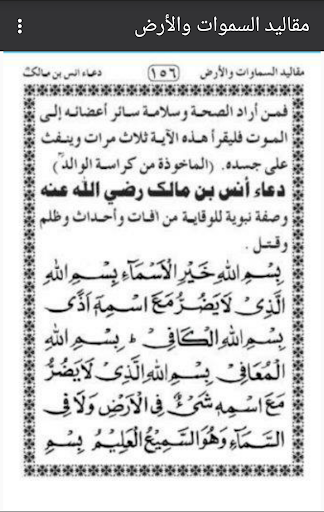 مقاليد السموات والأرض
مقاليد السماوات والأرض ١٥٦ دعاء انس بن مالك
فمن أراد الصحة وسلامة سائر أعضائه إلى
الموت فليقرأ هذه الآية ثلاث مرات وينفث
على جسده. (الماخوذة من كراسة الوالد)
دعاء أنس بن مالك رضي الله عنه
وصفة نبوية للوقاية من افات وأحداث وظلم
وقتل.
بِسْمِ اللهِ خَيْرِ الْاَسْمَآءِ بِسْمِ اللهِ
الَّذِىْ لَا يَضُرُّ مَعَ اسْمِهٖ اَذًى
بِسْمِ اللهِ الْكَافِىْ ، بِسْمِ اللهِ
الْمُعَافِىْ بِسْمِ اللهِ الَّذِىْ لَا يَضُرُّ
مَعَ اسْمِهٖ شَىْءٌ فِى الْاَرْضِ وَلَا فِى
السَّمَآءِ وَهُوَ السَّمِيْعُ الْعَلِيْمُ بِسْمِ